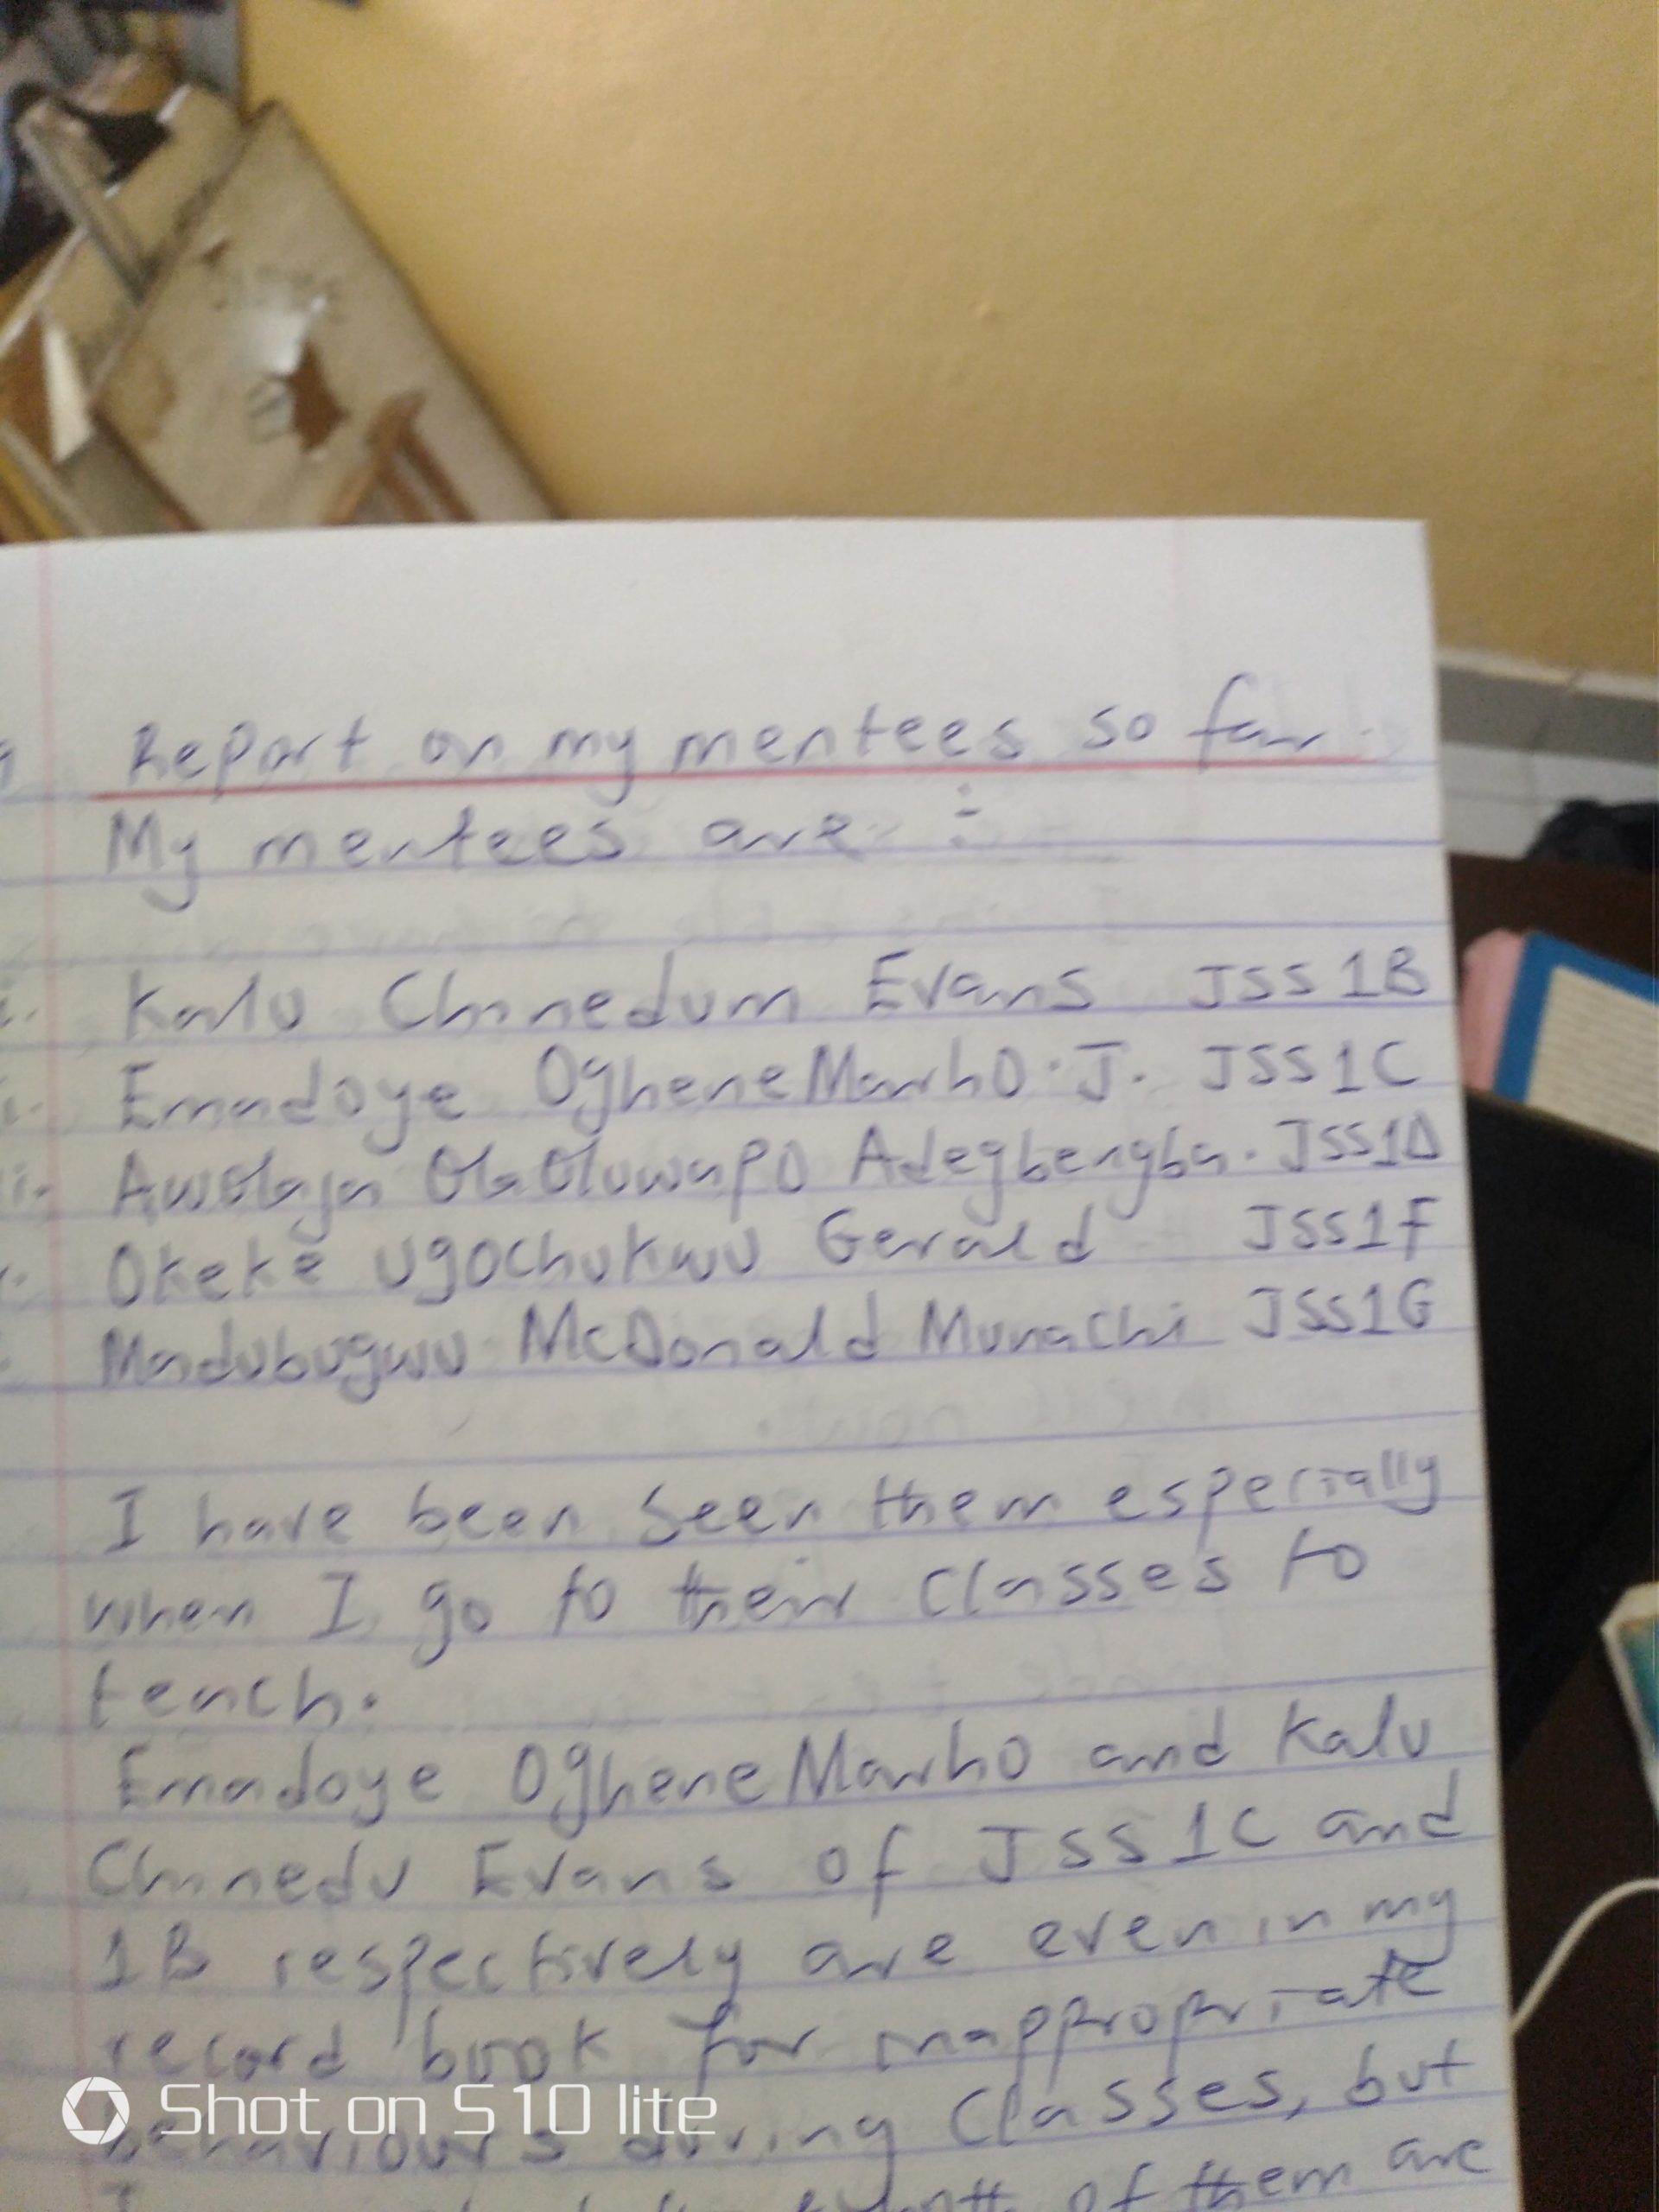 Report on my mentees so far.
My mentees are :-
i. Kalu Chinedum Evans JSS 1B
Emadoye OgheneMarho. J. JSS1C
Awolaja OlaOluwapo Adegbengba. JSS1D
Okeke Ugochukwu Gerald JSS1F
Madubugwu McDonald Munachi JSS1G
I have been seen them especially
when I go to their classes to
teach.
Emadoye OgheneMarho and Kalu
Chinedu Evans of JSS 1C and
1B respectively are even in my
record book for inappropriate
behaviours during classes, but
of them are
Shot on S10 lite